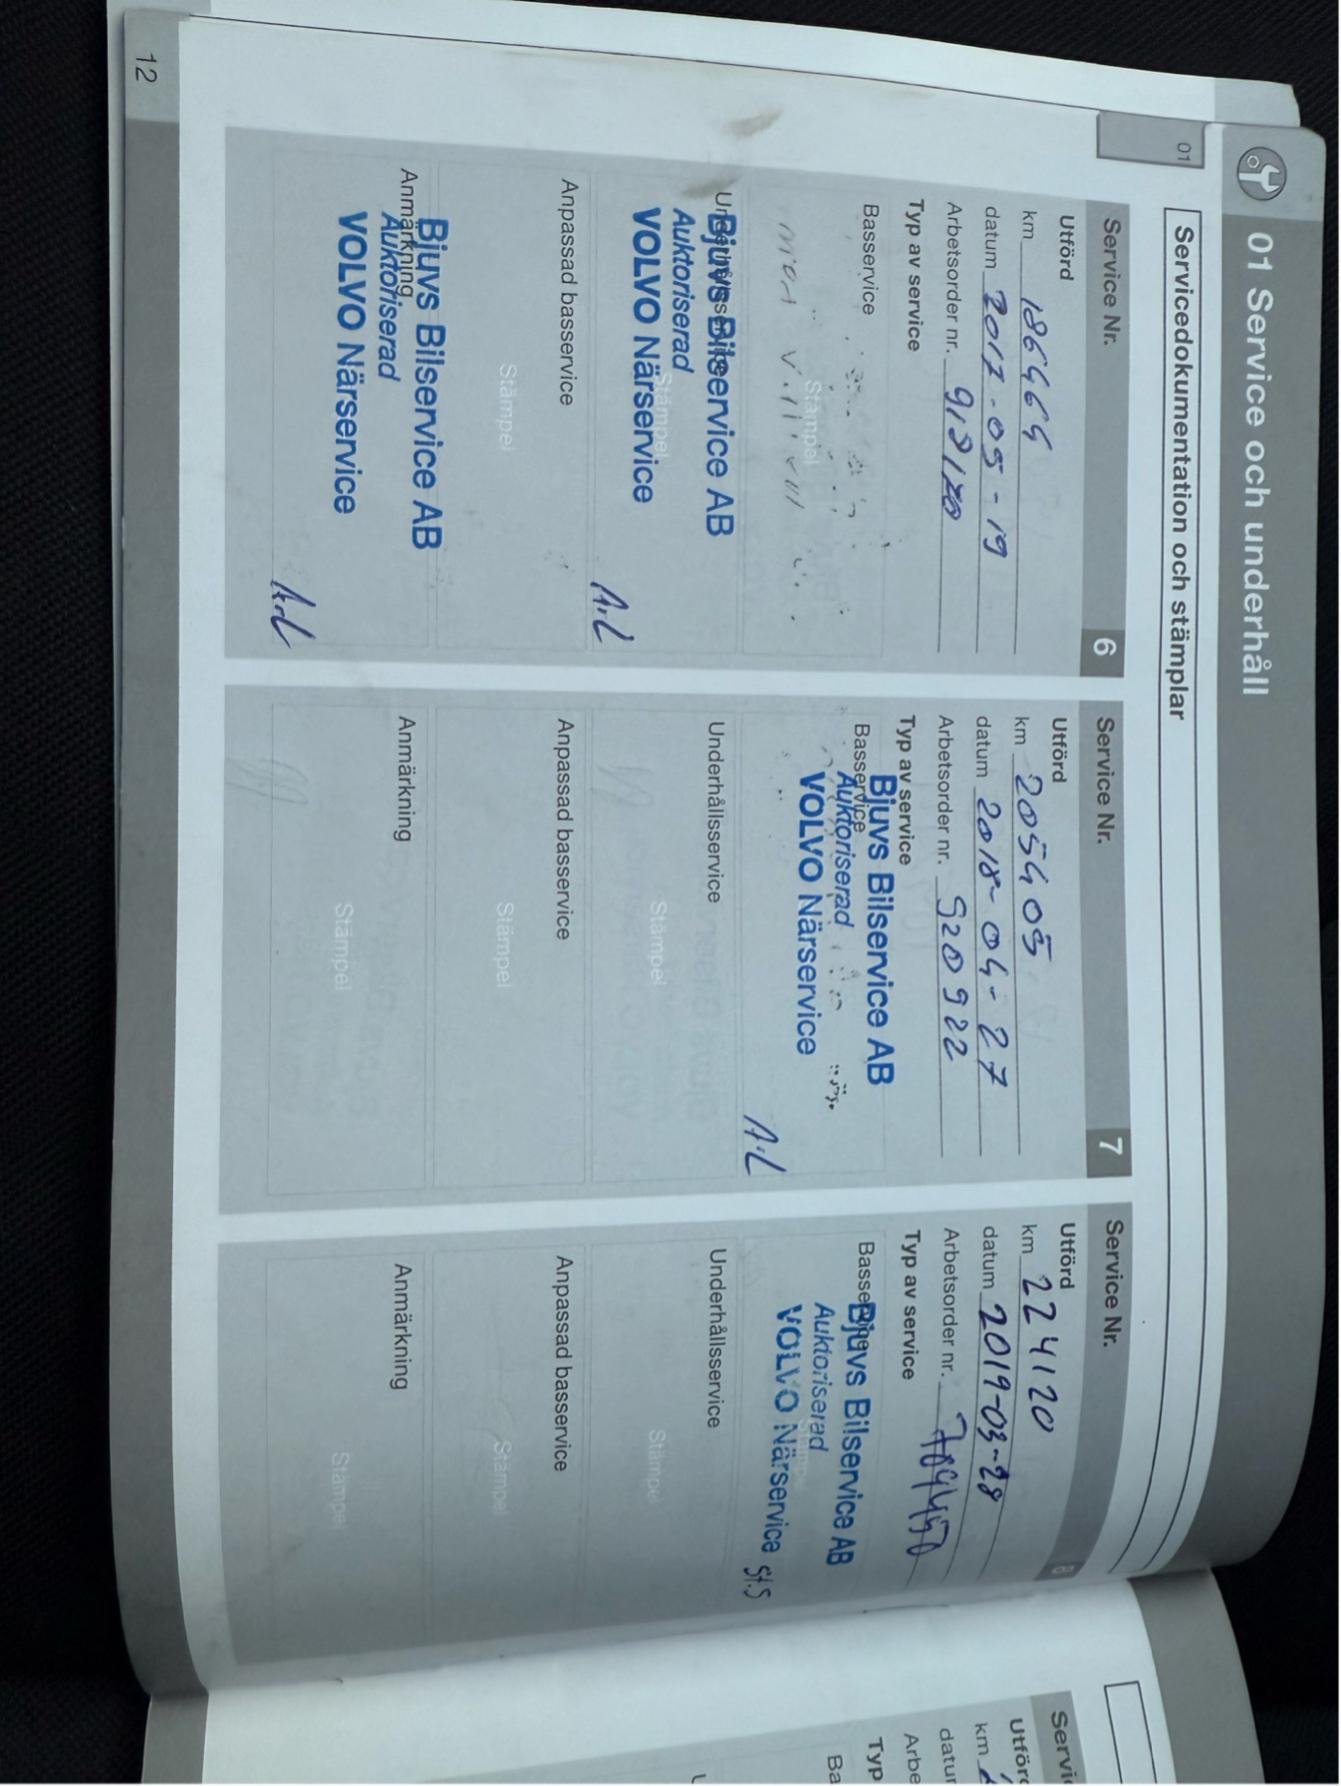 01 Service och underhåll
01
Servicedokumentation och stämplar
Service Nr. 6
Utförd
km
datum 2017-05-19
Arbetsorder nr.
Typ av service
Basservice
Stämpel
Underhållsservice
Bjuvs Bilservice AB
Auktoriserad
VOLVO Närservice
Stämpel
A.L
Anpassad basservice
Stämpel
Anmärkning
Bjuvs Bilservice AB
Auktoriserad
VOLVO Närservice
A.L
Service Nr. 7
Utförd
km 205405
datum 2018-04-27
Arbetsorder nr. 920922
Typ av service
Basservice
Bjuvs Bilservice AB
Auktoriserad
VOLVO Närservice
A.L
Underhållsservice
Stämpel
Anpassad basservice
Stämpel
Anmärkning
Stämpel
Service Nr. 8
Utförd
km 224120
datum 2019-03-28
Arbetsorder nr.
Typ av service
Basservice
Bjuvs Bilservice AB
Auktoriserad
VOLVO Närservice
St.S
Underhållsservice
Stämpel
Anpassad basservice
Stämpel
Anmärkning
Stämpel
12
Servi
Utförd
km
datum
Arbe
Typ
Ba